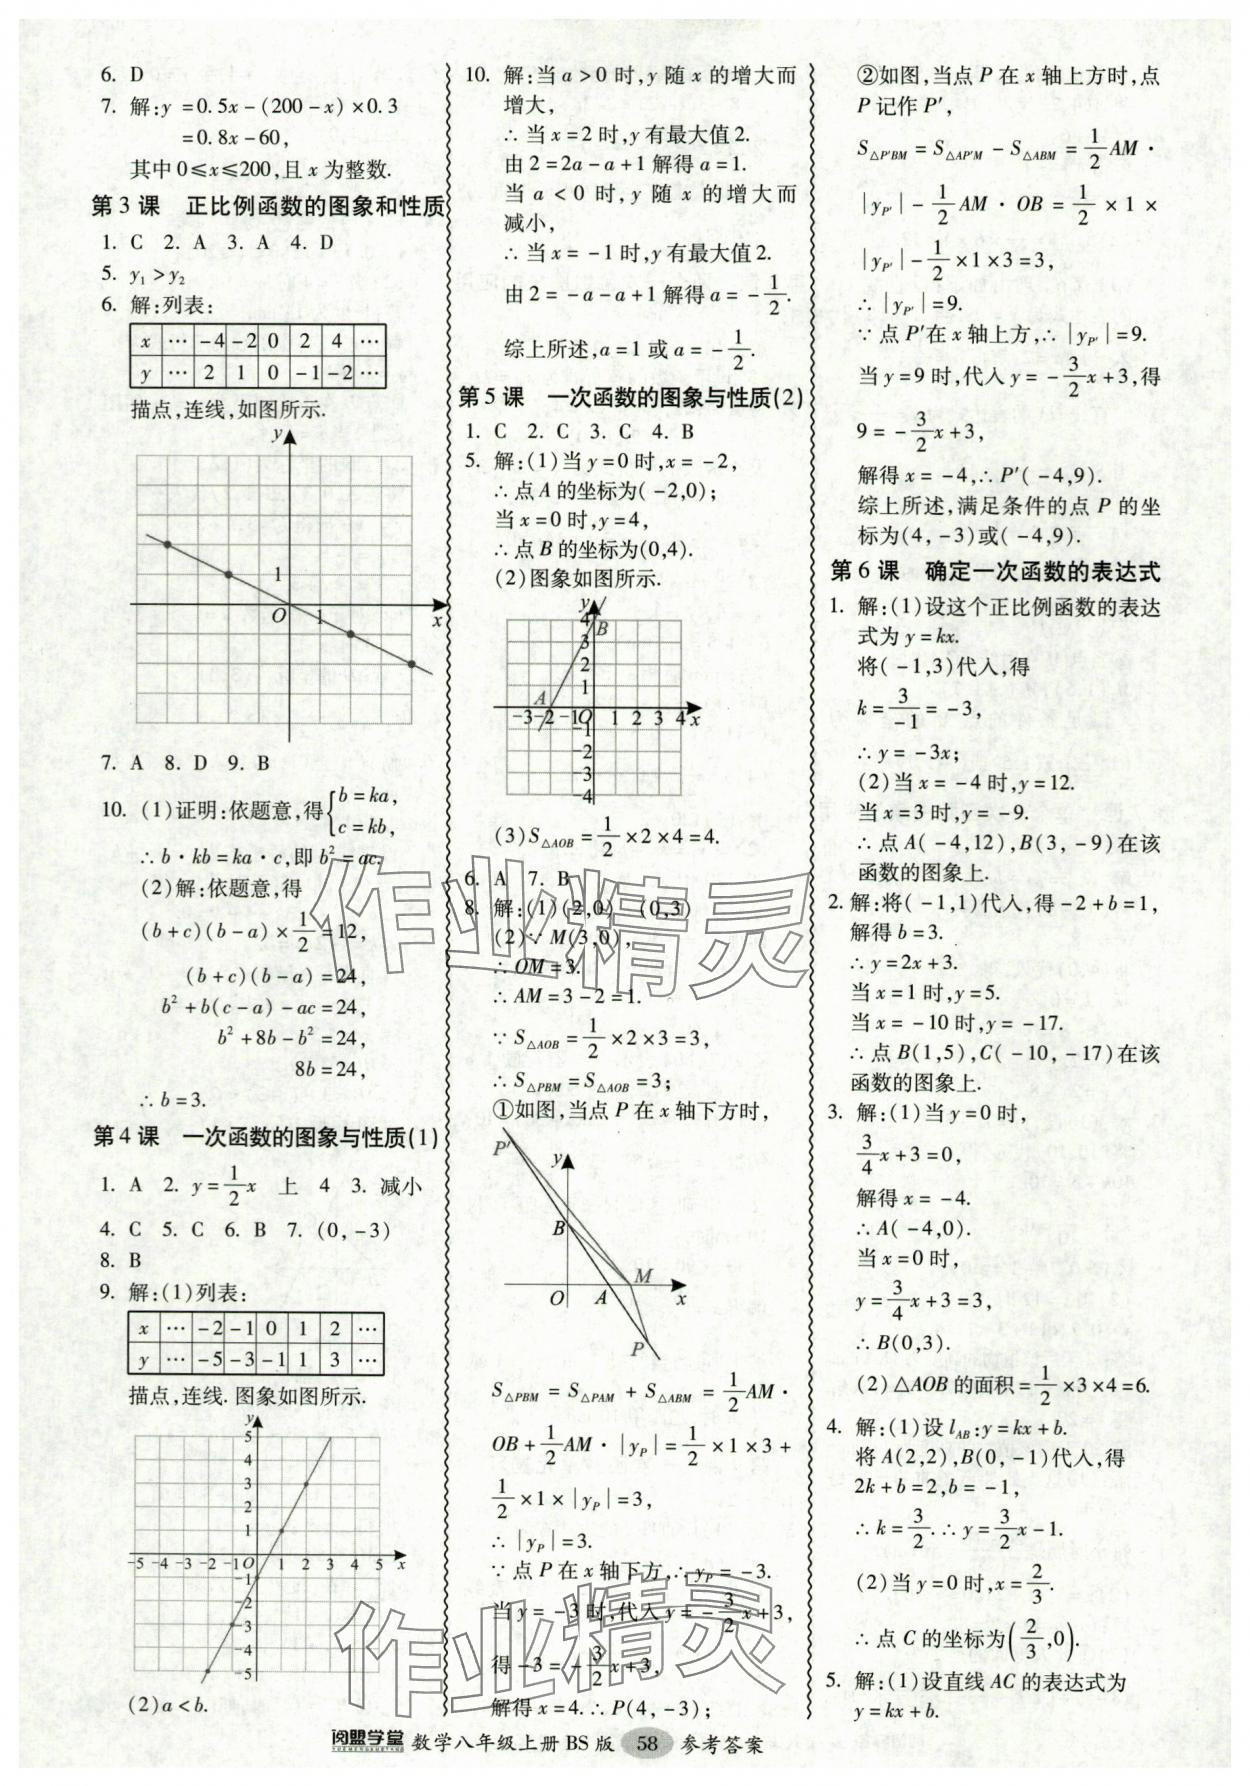 6. D
7. 解:y=0.5x-(200-x)×0.3
=0.8x-60,
其中0≤x≤200,且x为整数.
第3课 正比例函数的图象和性质
1. C 2. A 3. A 4. D
5. y₁>y₂
6. 解:列表:
x … -4 -2 0 2 4 …
y … 2 1 0 -1 -2 …
描点,连线,如图所示.
y
1
O 1 x
7. A 8. D 9. B
10. (1)证明:依题意,得{b=ka,
c=kb,
∴b·kb=ka·c,即b²=ac.
(2)解:依题意,得
(b+c)(b-a)×1/2=12,
(b+c)(b-a)=24,
b²+b(c-a)-ac=24,
b²+8b-b²=24,
8b=24,
∴b=3.
第4课 一次函数的图象与性质(1)
1. A 2. y=1/2x 上 4 3. 减小
4. C 5. C 6. B 7. (0,-3)
8. B
9. 解:(1)列表:
x … -2 -1 0 1 2 …
y … -5 -3 -1 1 3 …
描点,连线.图象如图所示.
y
5
4
3
2
1
-5 -4 -3 -2 -1 O 1 2 3 4 5 x
-1
-2
-3
-4
-5
(2)a<b.
10. 解:当a>0时,y随x的增大而
增大,
∴当x=2时,y有最大值2.
由2=2a-a+1解得a=1.
当a<0时,y随x的增大而
减小,
∴当x=-1时,y有最大值2.
由2=-a-a+1解得a=-1/2.
综上所述,a=1或a=-1/2.
第5课 一次函数的图象与性质(2)
1. C 2. C 3. C 4. B
5. 解:(1)当y=0时,x=-2,
∴点A的坐标为(-2,0);
当x=0时,y=4,
∴点B的坐标为(0,4).
(2)图象如图所示.
y
4 B
3
2
A 1
-3 -2 -1 O 1 2 3 4 x
-1
-2
-3
-4
(3)S△AOB=1/2×2×4=4.
6. A 7. B
8. 解:(1)(2,0) (0,3)
(2)∵M(3,0),
∴OM=3.
∴AM=3-2=1.
∵S△AOB=1/2×2×3=3,
∴S△PBM=S△AOB=3;
①如图,当点P在x轴下方时,
P′ y
B
M
O A x
P
S△PBM=S△PAM+S△ABM=1/2AM·
OB+1/2AM·|yP|=1/2×1×3+
1/2×1×|yP|=3,
∴|yP|=3.
∵点P在x轴下方,∴yP=-3.
当y=-3时,代入y=-3/2x+3,
得-3=-3/2x+3,
解得x=4.∴P(4,-3);
②如图,当点P在x轴上方时,点
P记作P′,
S△P′BM=S△AP′M-S△ABM=1/2AM·
|yP′|-1/2AM·OB=1/2×1×
|yP′|-1/2×1×3=3,
∴|yP′|=9.
∵点P′在x轴上方,∴|yP′|=9.
当y=9时,代入y=-3/2x+3,得
9=-3/2x+3,
解得x=-4,∴P′(-4,9).
综上所述,满足条件的点P的坐
标为(4,-3)或(-4,9).
第6课 确定一次函数的表达式
1. 解:(1)设这个正比例函数的表达
式为y=kx.
将(-1,3)代入,得
k=3/-1=-3,
∴y=-3x;
(2)当x=-4时,y=12.
当x=3时,y=-9.
∴点A(-4,12),B(3,-9)在该
函数的图象上.
2. 解:将(-1,1)代入,得-2+b=1,
解得b=3.
∴y=2x+3.
当x=1时,y=5.
当x=-10时,y=-17.
∴点B(1,5),C(-10,-17)在该
函数的图象上.
3. 解:(1)当y=0时,
3/4x+3=0,
解得x=-4.
∴A(-4,0).
当x=0时,
y=3/4x+3=3,
∴B(0,3).
(2)△AOB的面积=1/2×3×4=6.
4. 解:(1)设lAB:y=kx+b.
将A(2,2),B(0,-1)代入,得
2k+b=2,b=-1,
∴k=3/2.∴y=3/2x-1.
(2)当y=0时,x=2/3.
∴点C的坐标为(2/3,0).
5. 解:(1)设直线AC的表达式为
y=kx+b.
作业精灵
作业精灵
阅盟学堂 数学八年级上册BS版 58 参考答案